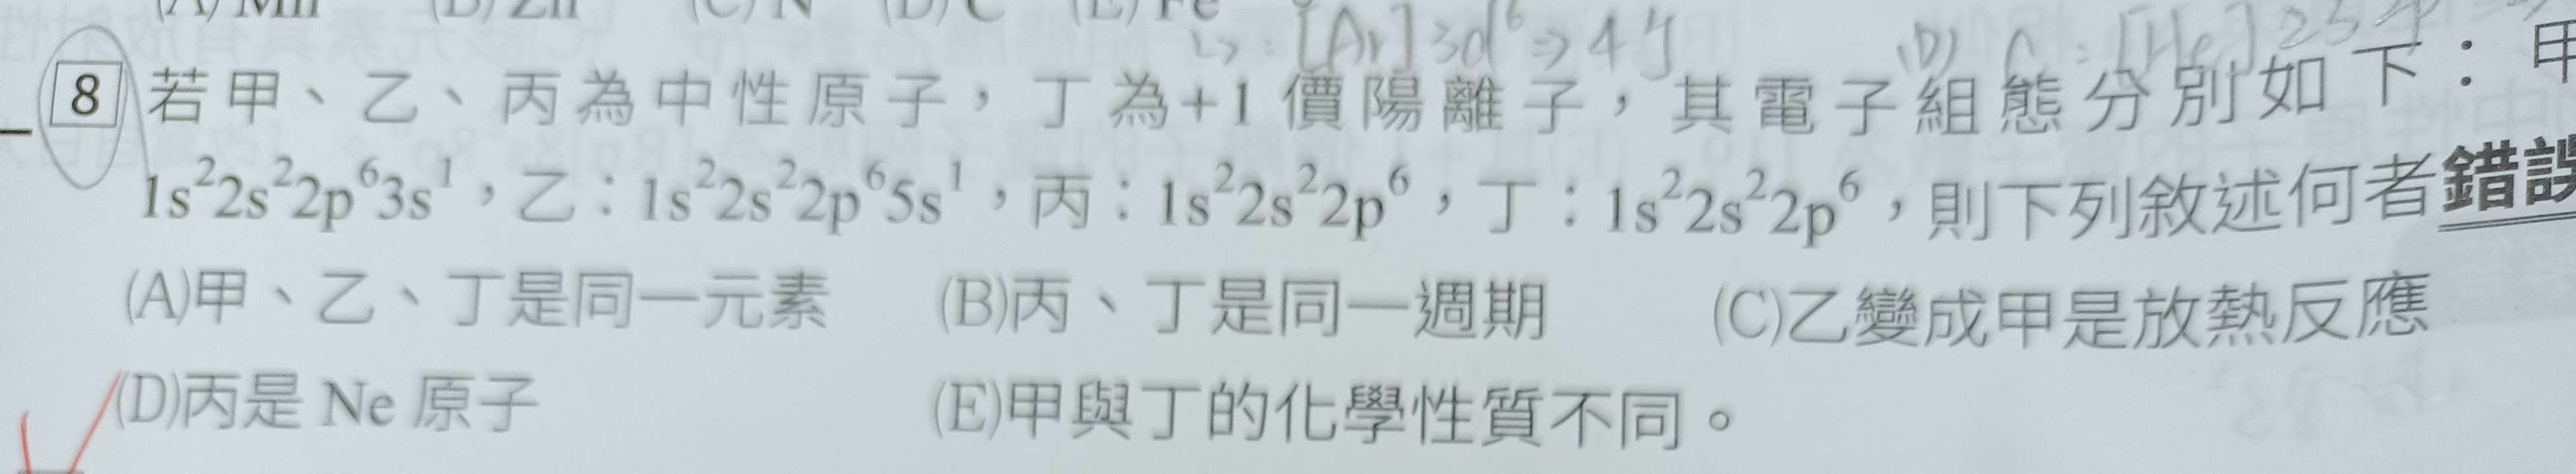 (A) Mn (B) Zn (C) N (D) C (E) Fe
[Ar]3d⁶⇒4個
(D) C：[He]2s
8 若甲、乙、丙為中性原子，丁為+1 價陽離子，其電子組態分別如下：甲
1s²2s²2p⁶3s¹，乙：1s²2s²2p⁶5s¹，丙：1s²2s²2p⁶，丁：1s²2s²2p⁶，則下列敘述何者錯誤
(A)甲、乙、丁是同一元素 (B)丙、丁是同一週期 (C)乙變成甲是放熱反應
(D)丙是 Ne 原子 (E)甲與丁的化學性質不同。